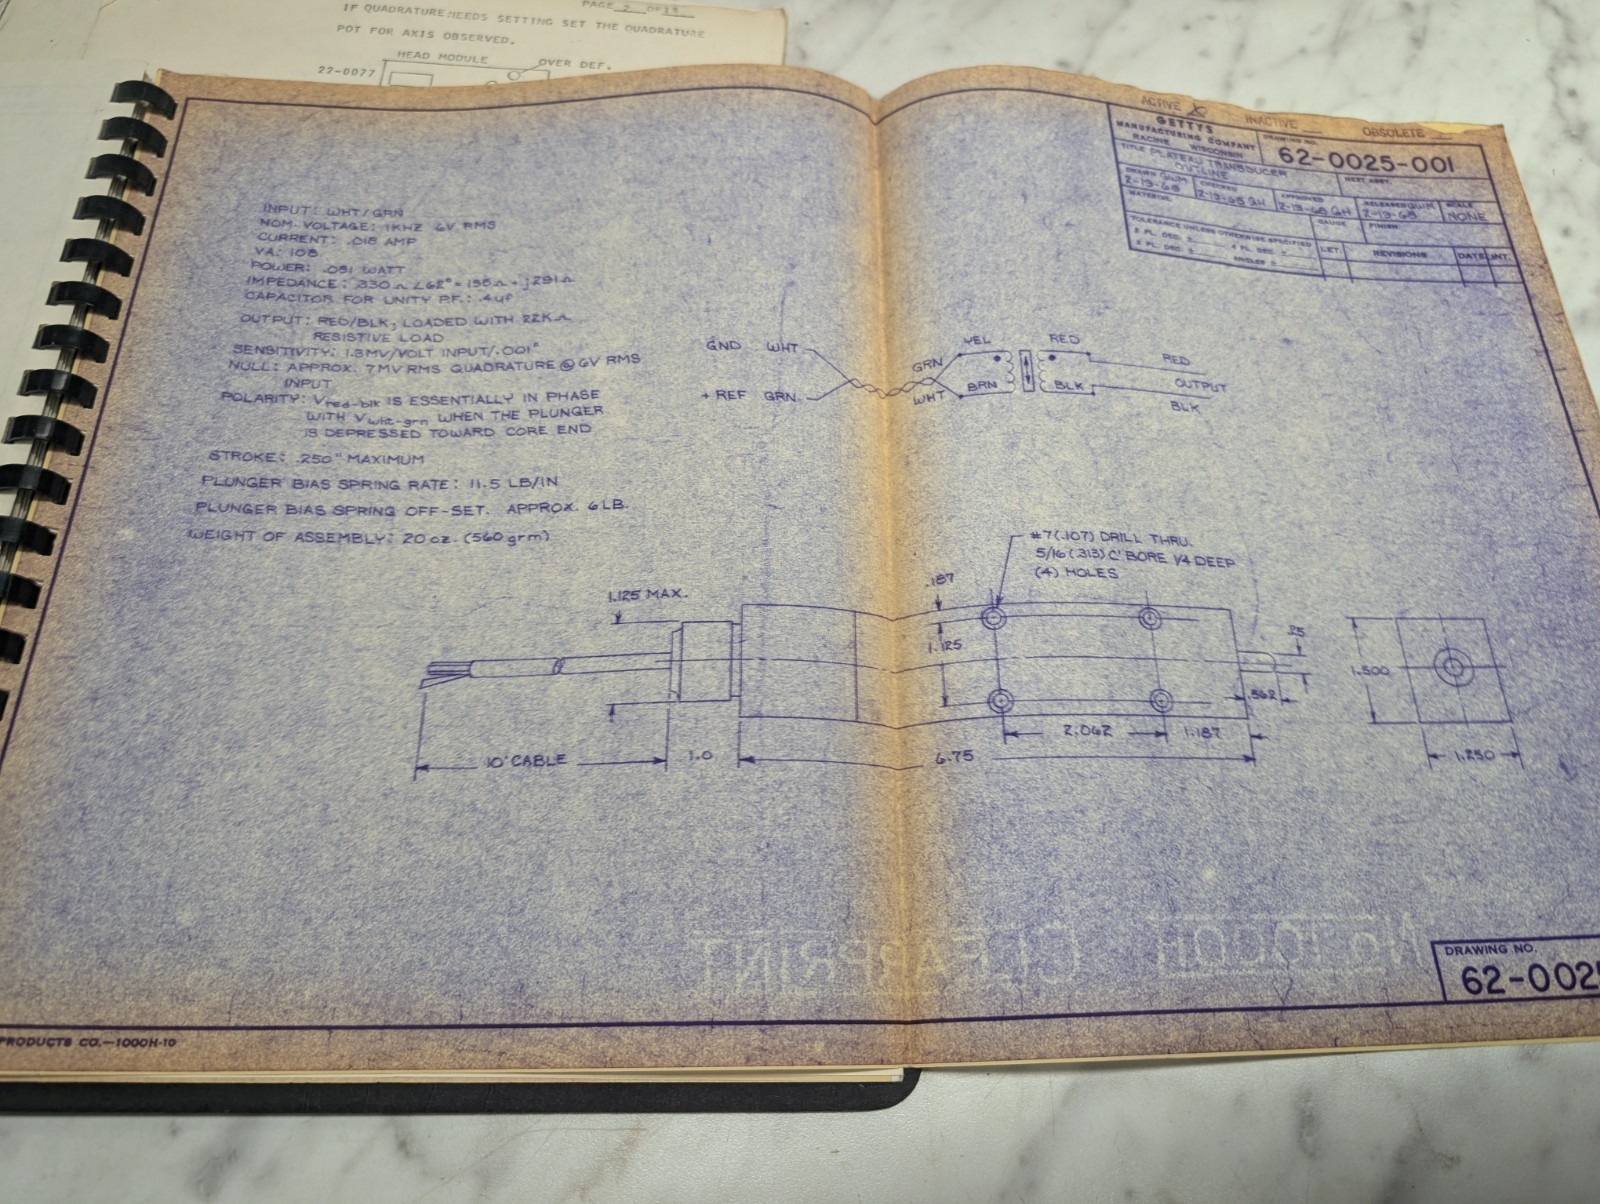 PAGE 2 OF 15
IF QUADRATURE NEEDS SETTING SET THE QUADRATURE
POT FOR AXIS OBSERVED.
HEAD MODULE
OVER DEF.
22-0077
ACTIVE X INACTIVE OBSOLETE
GETTYS
MANUFACTURING COMPANY
RACINE WISCONSIN
DRAWING NO.
62-0025-001
TITLE PLATEAU TRANSDUCER
OUTLINE
NEXT ASSY.
DRAWN GWM
2-13-68
CHECKED
2-13-68 GH
APPROVED
2-13-68 GH
RELEASED GWM
2-13-68
SCALE
NONE
MATERIAL
GAUGE
FINISH
TOLERANCE UNLESS OTHERWISE SPECIFIED
2 PL. DEC. ± 4 PL. DEC. ±
3 PL. DEC. ± ANGLES ±
LET. REVISIONS DATE INT.
INPUT: WHT/GRN
NOM. VOLTAGE: 1KHZ 6V RMS
CURRENT: .018 AMP
VA: .108
POWER: .051 WATT
IMPEDANCE: 330Ω ∠62° = 155Ω + j291Ω
CAPACITOR FOR UNITY P.F.: .4μf
OUTPUT: RED/BLK, LOADED WITH 22KΩ
RESISTIVE LOAD
SENSITIVITY: 1.3MV/VOLT INPUT/.001"
NULL: APPROX. 7MV RMS QUADRATURE @ 6V RMS
INPUT
POLARITY: Vred-blk IS ESSENTIALLY IN PHASE
WITH Vwht-grn WHEN THE PLUNGER
IS DEPRESSED TOWARD CORE END
STROKE: .250" MAXIMUM
PLUNGER BIAS SPRING RATE: 11.5 LB/IN
PLUNGER BIAS SPRING OFF-SET. APPROX. 6LB.
WEIGHT OF ASSEMBLY: 20 oz. (560 grm)
GND WHT
+ REF GRN.
GRN
WHT
YEL
BRN
RED
BLK
RED
OUTPUT
BLK
#7(.107) DRILL THRU.
5/16(.313) C'BORE 1/4 DEEP
(4) HOLES
1.125 MAX.
.187
1.125
.25
.562
1.500
2.062
1.187
10' CABLE
1.0
6.75
1.250
No. 1000H
CLEARPRINT
DRAWING NO.
62-0025
PRODUCTS CO.—1000H-10